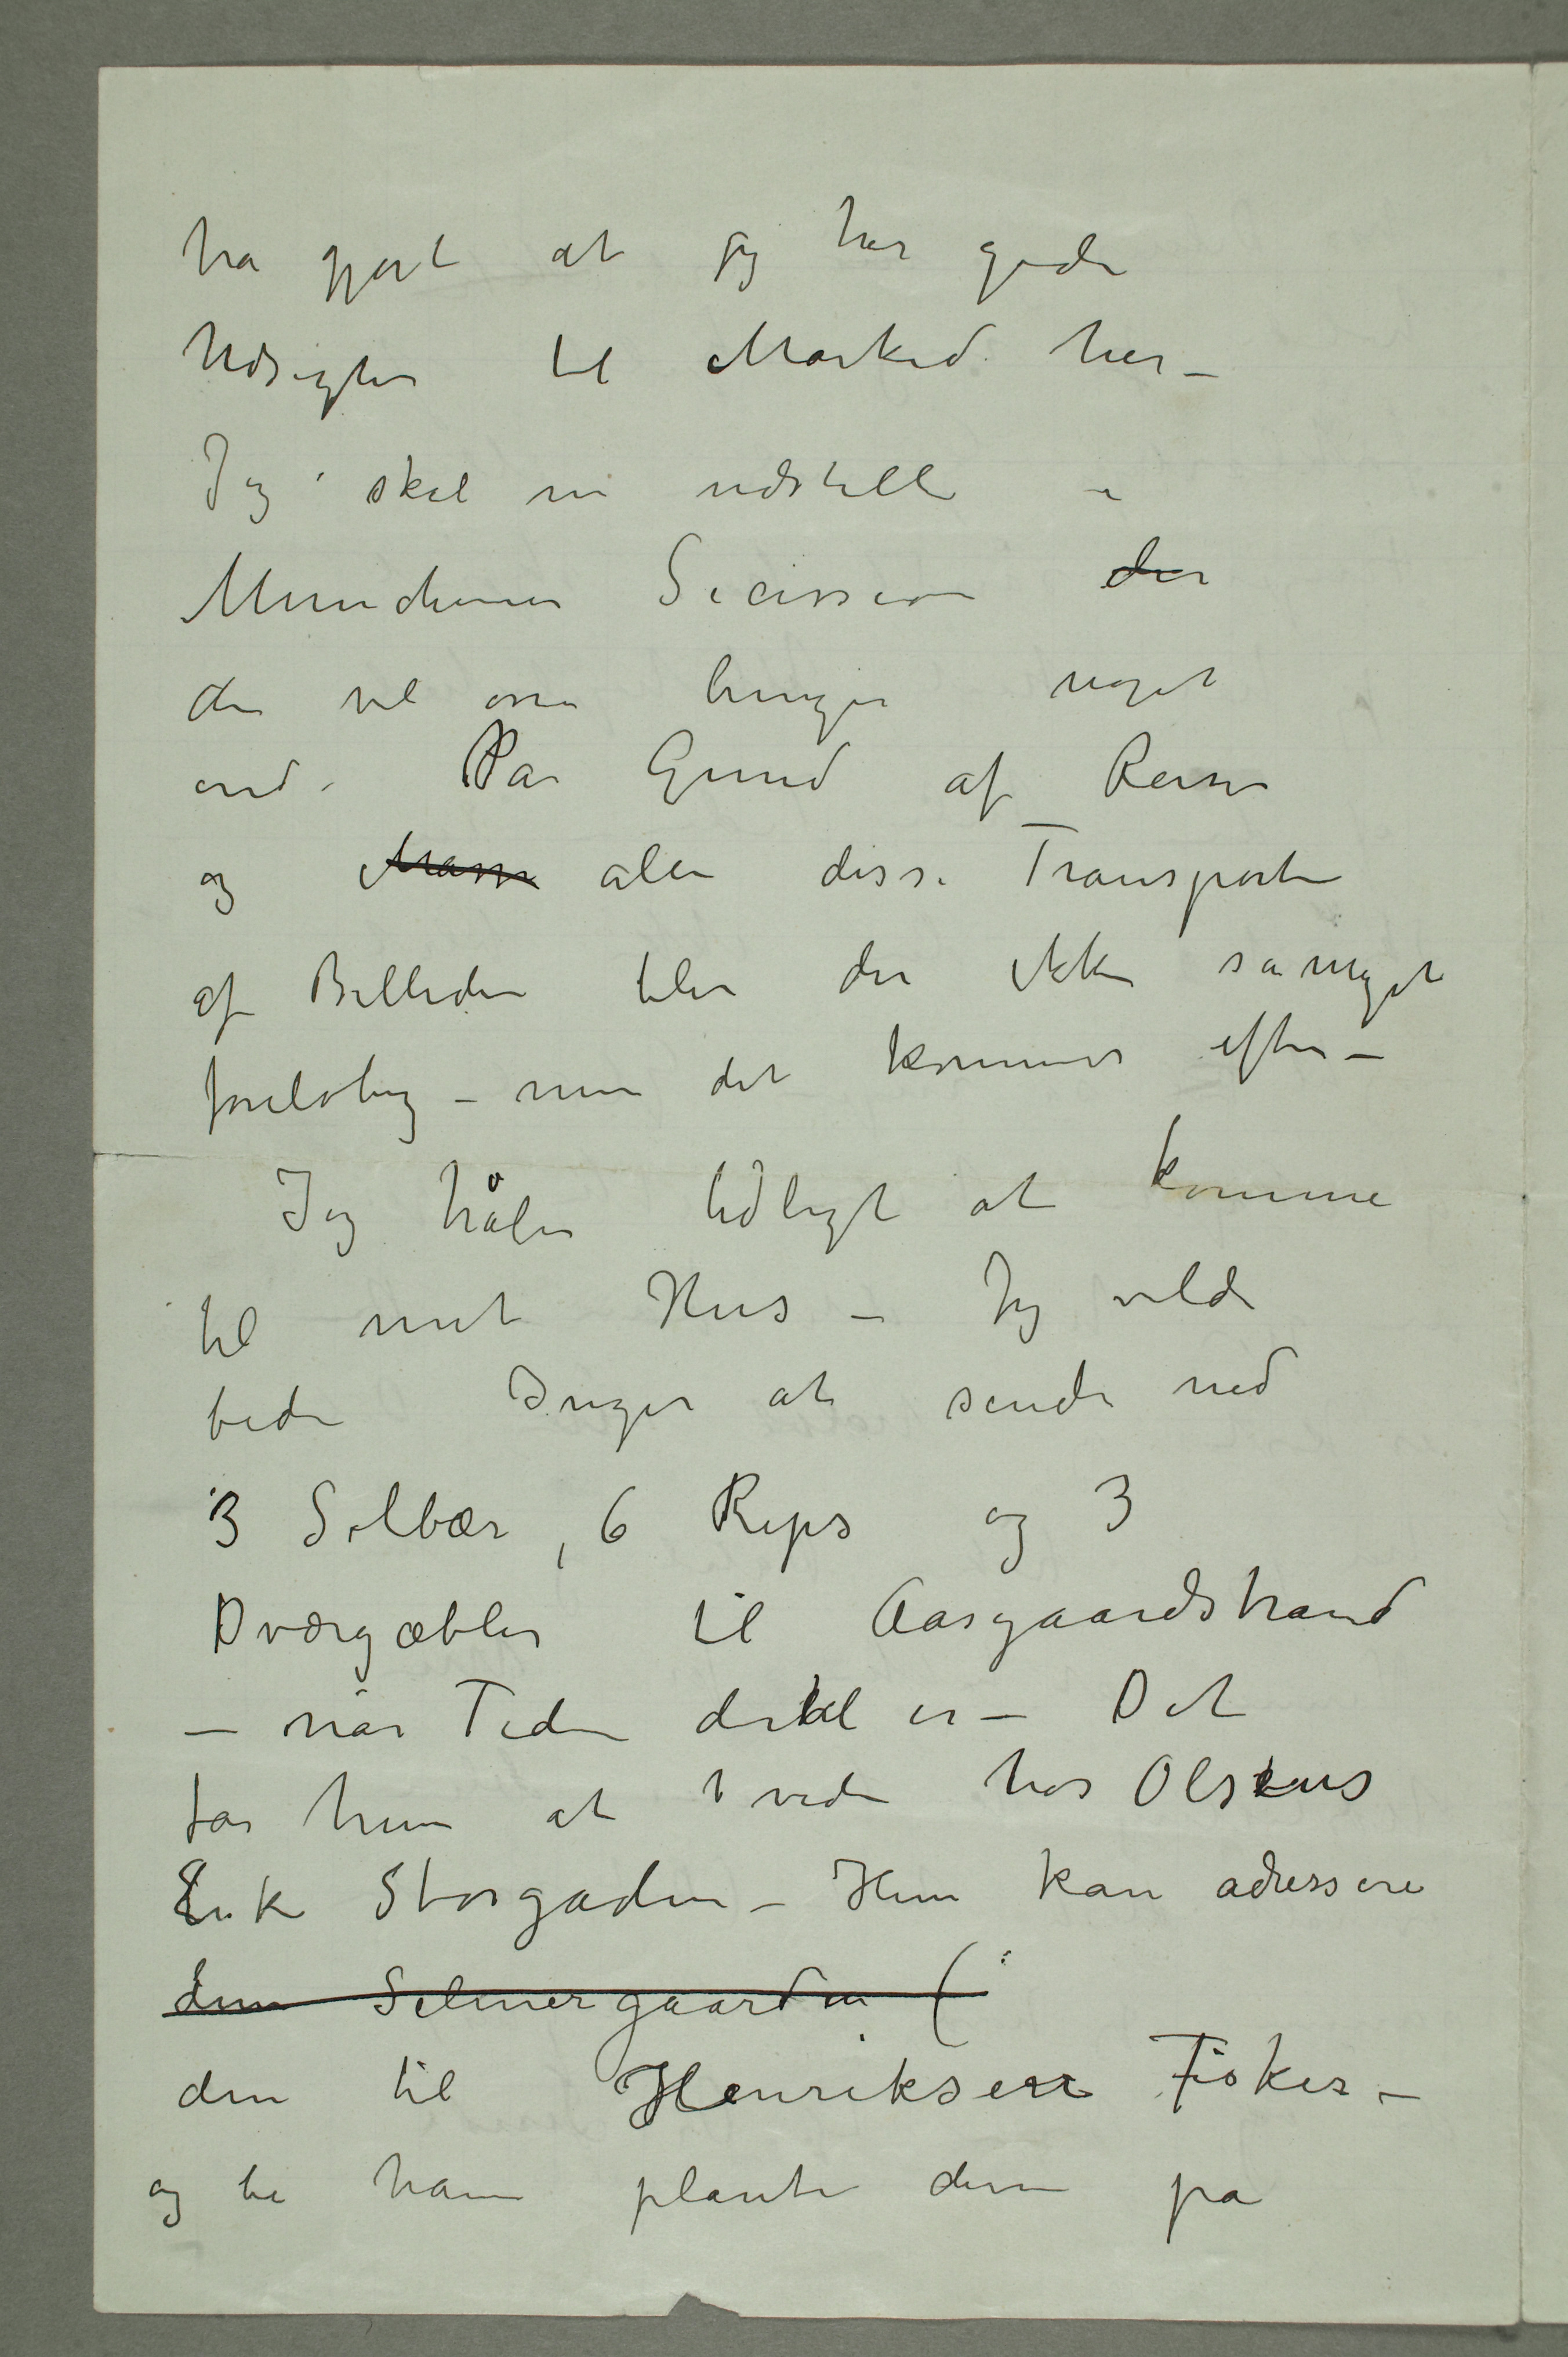 ha gjort at jeg har gode
Udsigter til Marked her –
Jeg skal nu udstille i
Münchener Secession der
der vil osså bringe noget
ind. På Grund af Reiser
og Mass alle disse Transporter
af Billeder blir der ikke så meget
foreløbig – men det kommer efter –
Jeg håber tidligt at komme
til mit Hus – Jeg vilde
bede Inger at sende ned
3 Solbær, 6 Rips og 3
Dværgæbler til Aasgaardstrand
– når Tiden dertil er – Det
får hun at vide hos Olsens
Enke Storgaden – Hun kan adressere
dem Selmergaarden (
dem til Henriksen Fisker –
og be ham plante dem på